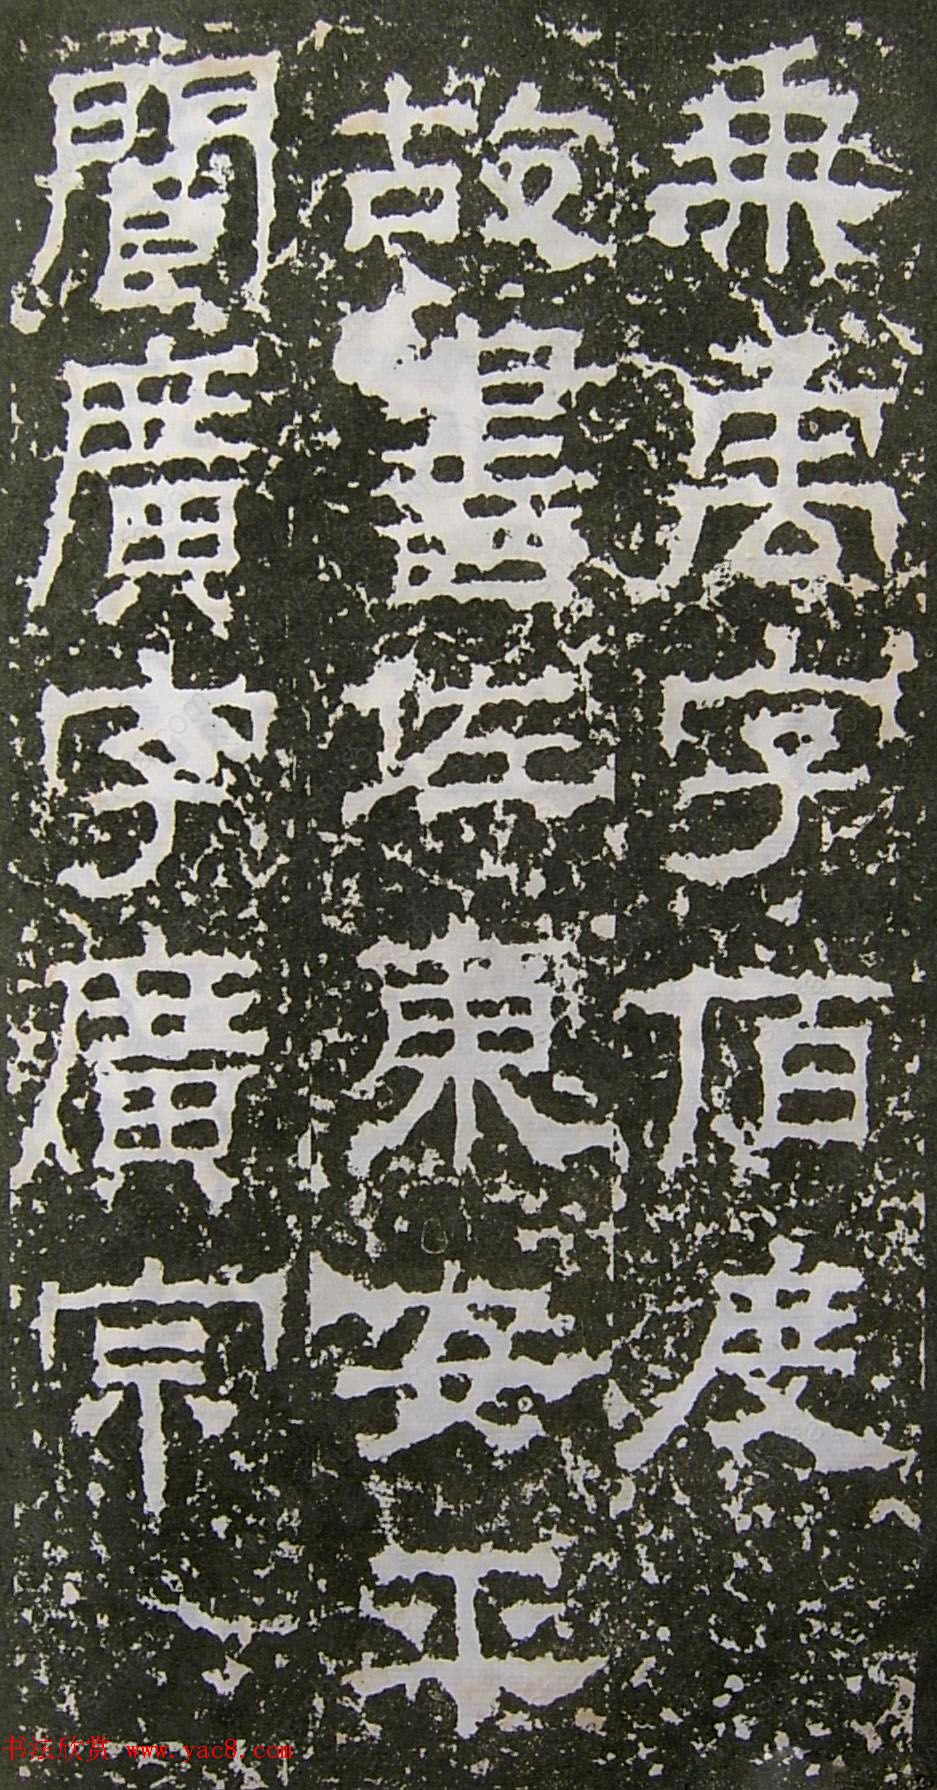 乘禹字佰度
故書佐東安平
閻廣字廣宗
书法欣赏 www.yac8.com